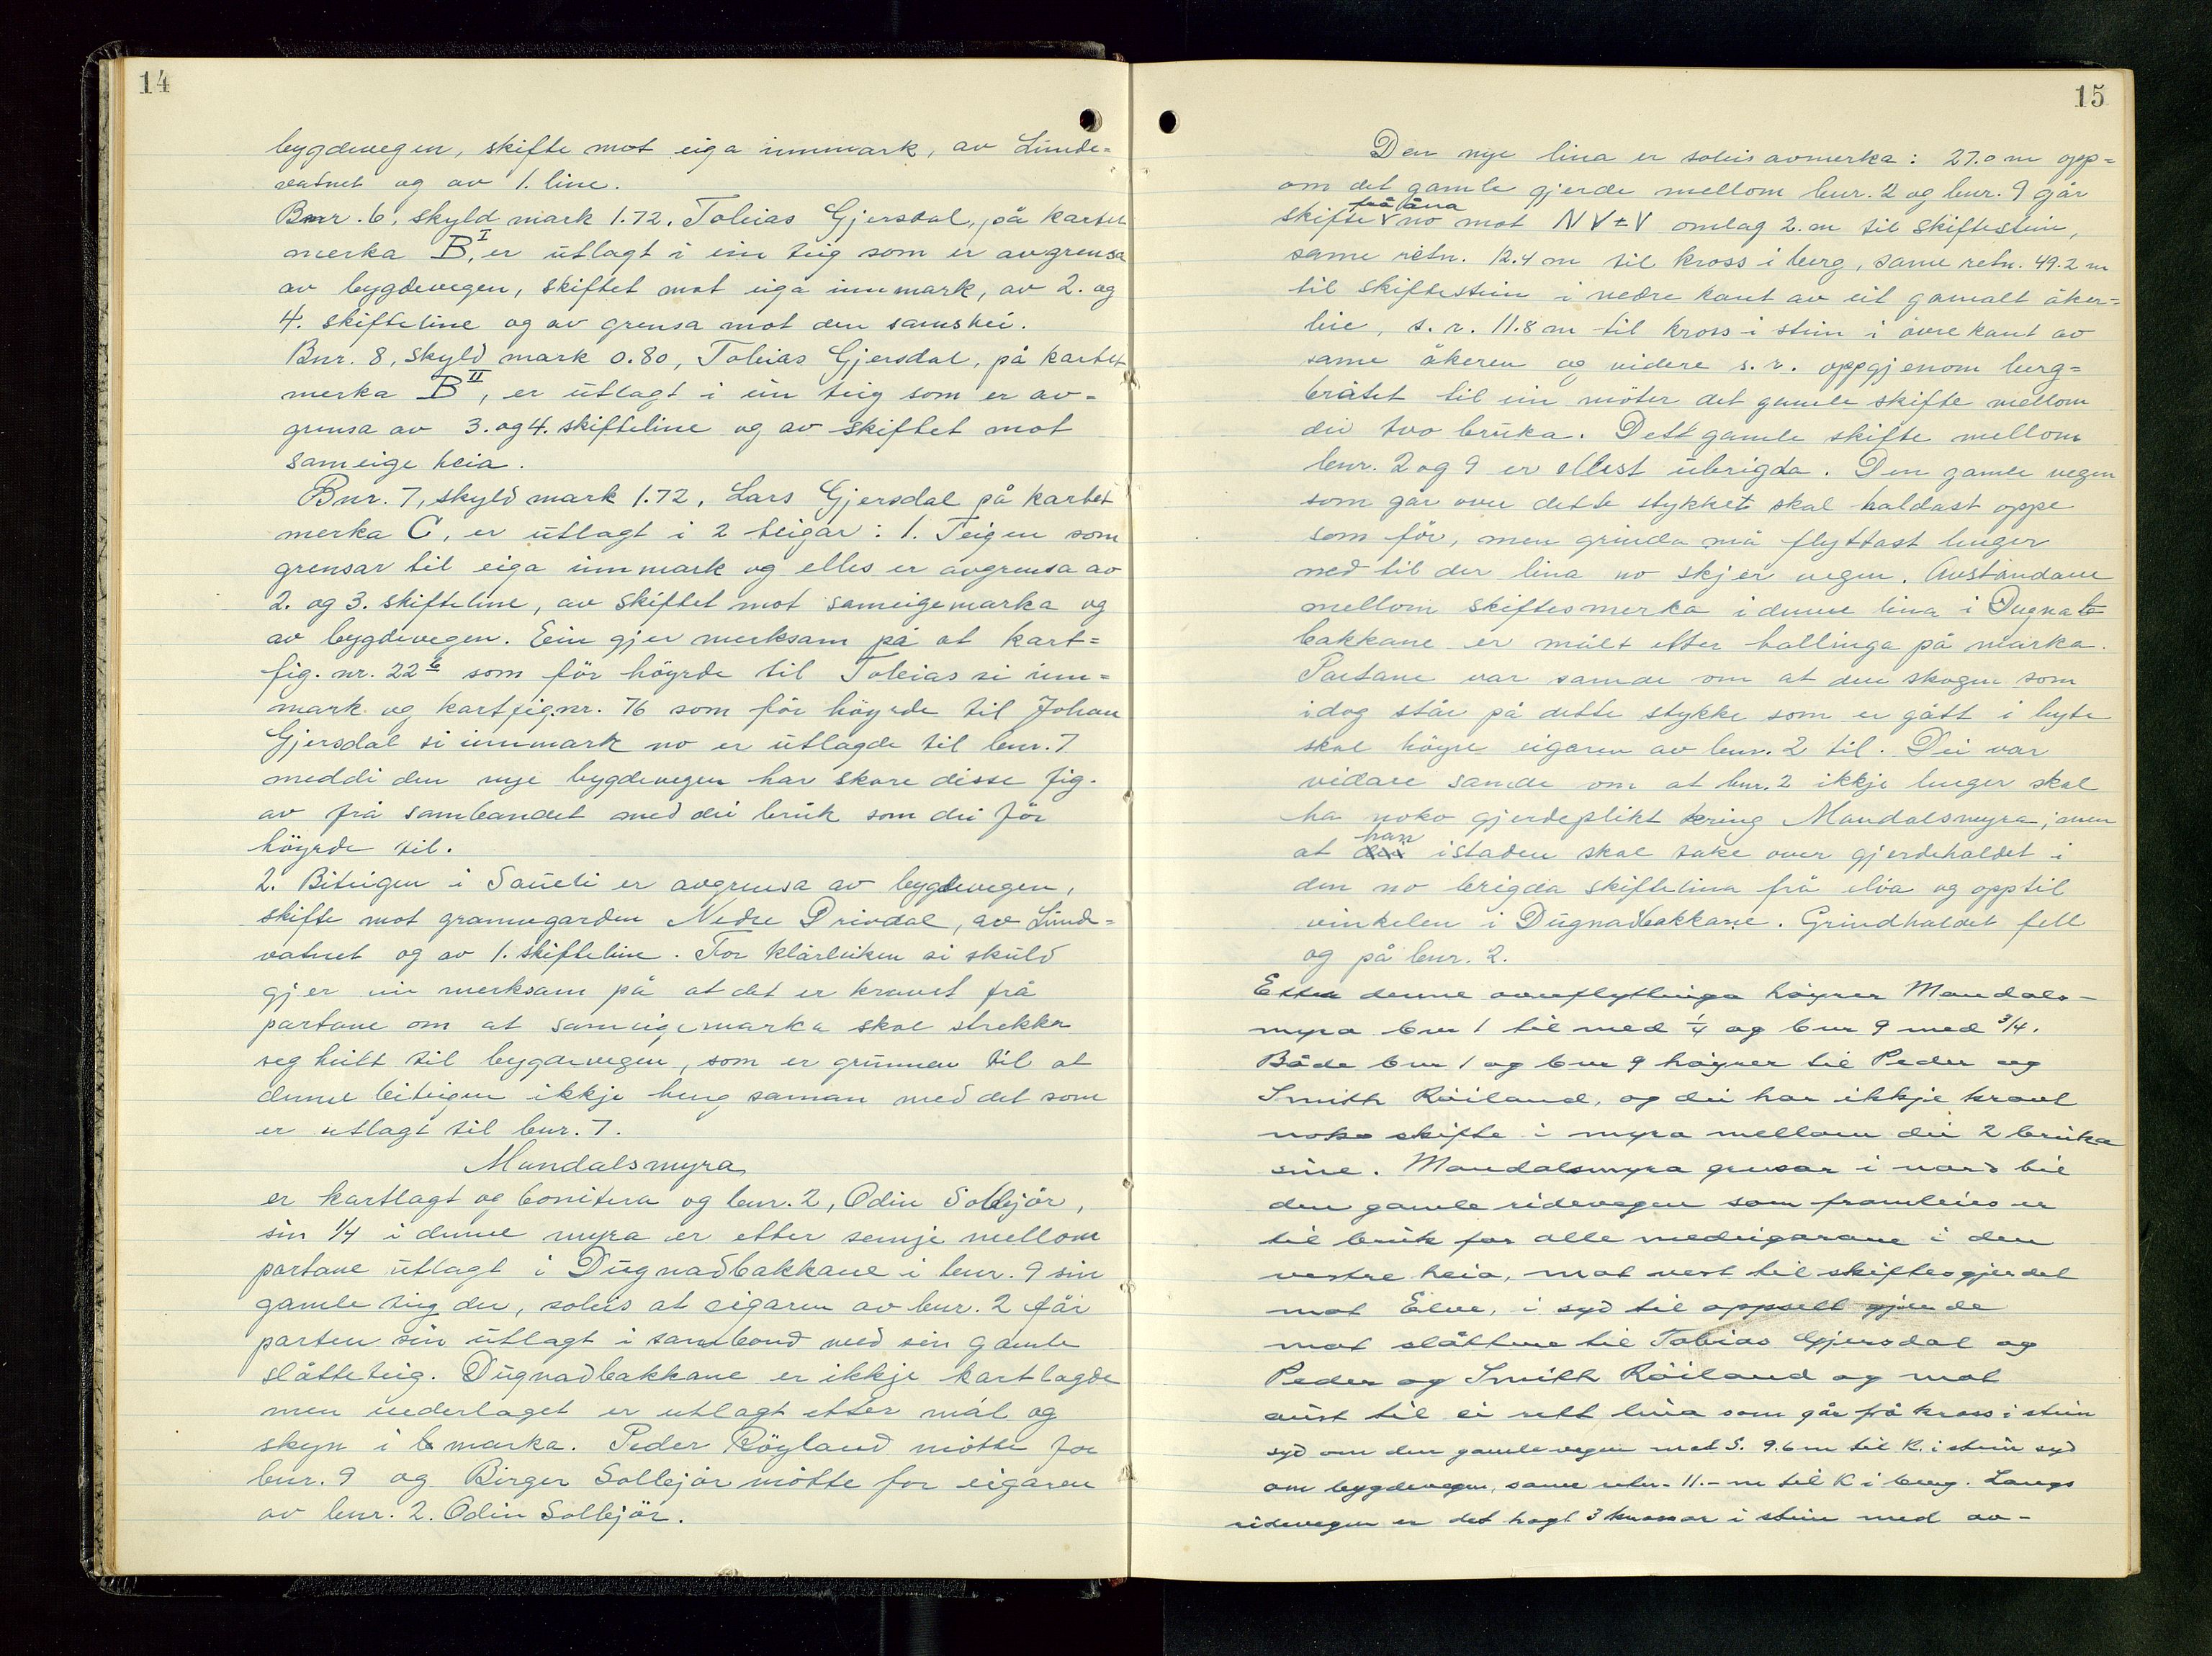 14
bygdevegen, skifte mot eiga innmark, av Lunde-
vatnet og av 1. line.
Bnr. 6, skyld mark 1.72, Tobias Gjersdal, på kartet
merka B I, er utlagt i ein teig som er avgrensa
av bygdevegen, skiftet mot eiga innmark, av 2. og
4. skifteline og av grensa mot den samshei.
Bnr. 8, skyld mark 0.80, Tobias Gjersdal, på kartet
merka B II, er utlagt i ein teig som er av-
grensa av 3. og 4. skifteline og av skiftet mot
sameige heia.
Bnr. 7, skyld mark 1.72, Lars Gjersdal på kartet
merka C, er utlagt i 2 teigar: 1. Teigen som
grensar til eiga innmark og elles er avgrensa av
2. og 3. skifteline, av skiftet mot sameigemarka og
av bygdevegen. Ein gjer merksam på at kart-
fig. nr. 22 b som för höyrde til Tobias si inn-
mark og kartfig.nr. 76 som för höyrde til Johan
Gjersdal si innmark no er utlagde til bnr. 7
meddi den nye bygdevegen har skore disse fig.
av frå sambandet med dei bruk som dei för
höyrde til.
2. Biteigen i Saueli er avgrensa av bygdevegen,
skifte mot grannegarden Nedre Drivdal, av Lund-
vatnet og av 1. skifteline. For klårleiken si skuld
gjer ein merksam på at det er kravet frå
partane om at sameigemarka skal strekka
seg heilt til bygdevegen, som er grunnen til at
denne biteigen ikkje heng saman med det som
er utlagt til bnr. 7.
Mandalsmyra
er kartlagt og bonitera og bnr. 2, Odin Solbjör,
sin 1/4 i denne myra er etter semje mellom
partane utlagt i Dugnadbakkane i bnr. 9 sin
gamle teig der, soleis at eigaren av bnr. 2 får
parten sin utlagt i samband med sin gamle
slåtteteig. Dugnadbakkane er ikkje kartlagde
men vederlaget er utlagt etter mål og
skyn i marka. Peder Röyland mötte for
bnr. 9 og Birger Solbjör mötte for eigaren
av bnr. 2. Odin Solbjör.
15
Den nye lina er soleis avmerka: 27.0 m opp-
om det gamle gjerde mellom bnr. 2 og bnr. 9 går
frå åna
skifte no mot NV±V omlag 2. m til skiftestein,
same retn. 12.4 m til kross i berg, same retn. 49.2 m
til skiftestein i nedre kant av eit gamalt åker-
leie, s. r. 11.8 m til kross i stein i övre kant av
same åkeren og videre s. r. oppgjenom berg-
bråtet til ein möter det gamle skifte mellom
dei tvo bruka. Dett gamle skifte mellom
bnr. 2 og 9 er ellest ubrigda. Den gamle vegen
som går over dette stykket skal haldast oppe
som för, men grinda må flyttast lenger
ned til der lina no skjer vegen. Avstandane
mellom skiftesmerka i denne lina i Dugnads
bakkane er målt etter hallinga på marka.
Partane var samde om at den skogen som
idag står på dette stykke som er gått i byte
skal höyre eigaren av bnr. 2 til. Dei var
vidare samde om at bnr. 2 ikkje lenger skal
ha noko gjerdeplikt kring Mandalsmyra, men
han
at istaden skal take over gjerdehaldet i
den no brigda skiftelina frå elva og opptil
vinkelen i Dugnadbakkane. Grindhaldet fell
og på bnr. 2.
Etter denne overflyttinga höyrer Mandals-
myra bnr 1 til med 1/4 og bnr 9 med 3/4.
Både bnr 1 og bnr 9 höyrer til Peder og
Smith Röiland, og dei har ikkje kravt
noko skifte i myra mellom dei 2 bruka
sine. Mandalsmyra grensar i nord til
den gamle ridevegen som framleies er
til bruk for alle medeigarane i den
vestre heia, mot vest til skiftesgjerdet
mot Elve, i syd til oppsett gjerde
mot slåttene til Tobias Gjersdal og
Peder og Smith Röiland og mot
aust til ei rett lina som går frå kross i stein
syd om den gamle vegen mot S. 9.6 m til K. i stein syd
om bygdevegen, same retn. 11.- m til K i berg. Langs
ridevegen er det hogt 3 krossar i stein med av-